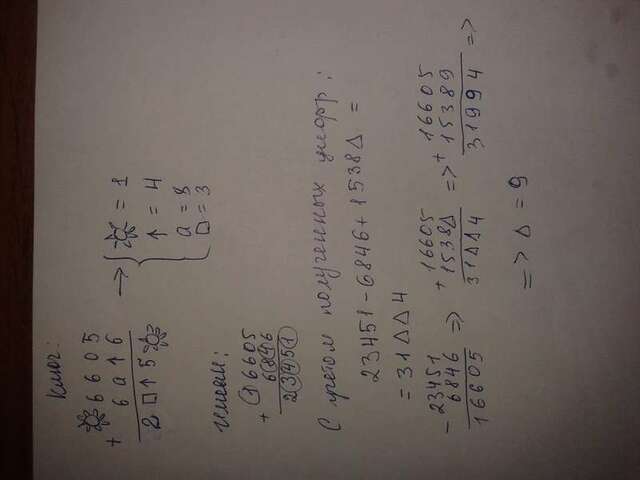 Ключ:
+ ✲6605
6a↑6
2□↑5✲
→ { ✲ = 1
↑ = 4
a = 8
□ = 3
Имеем:
+ 16605
6846
23451
С учетом полученных цифр:
23451 - 6846 + 1538△ =
= 31△△4
- 23451
6846
16605
=> + 16605
1538△
31△△4
=> + 16605
15389
31994
=>
=> △ = 9